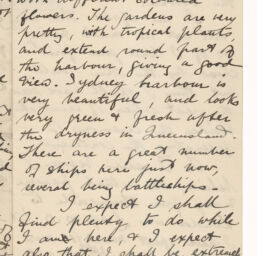 with different coloured
flowers. The gardens are very
pretty, with tropical plants,
and extend round part of
the harbour, giving a good
view. Sydney harbour is
very beautiful, and looks
very green & fresh after
the dryness in Queensland.
There are a great number
of ships here just now,
several being battleships.
I expect I shall
find plenty to do while
I am here, & I expect
also that I shall be extremely